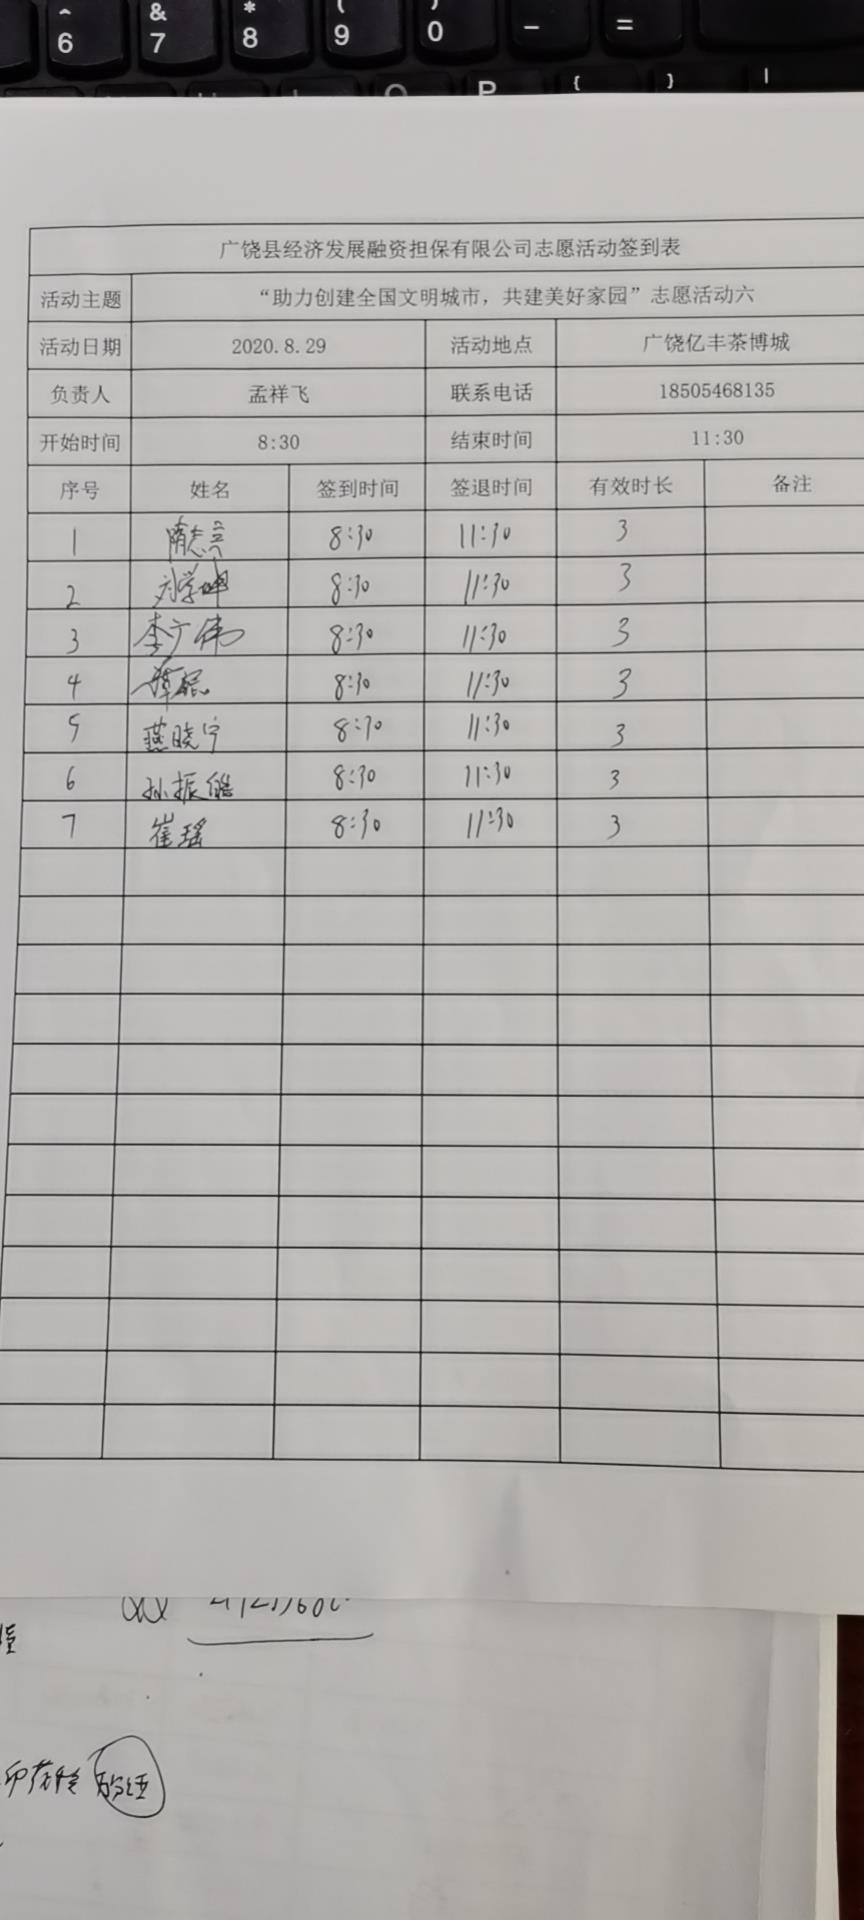 ^ & * ( )
6 7 8 9 0 - =
O P { } |
广饶县经济发展融资担保有限公司志愿活动签到表
活动主题 “助力创建全国文明城市，共建美好家园”志愿活动六
活动日期 2020.8.29 活动地点 广饶亿丰茶博城
负责人 孟祥飞 联系电话 18505468135
开始时间 8:30 结束时间 11:30
序号 姓名 签到时间 签退时间 有效时长 备注
1 8:30 11:30 3
2 刘学坤 8:30 11:30 3
3 李广伟 8:30 11:30 3
4 8:30 11:30 3
5 燕晓宁 8:30 11:30 3
6 孙振皓 8:30 11:30 3
7 崔瑶 8:30 11:30 3
QQ